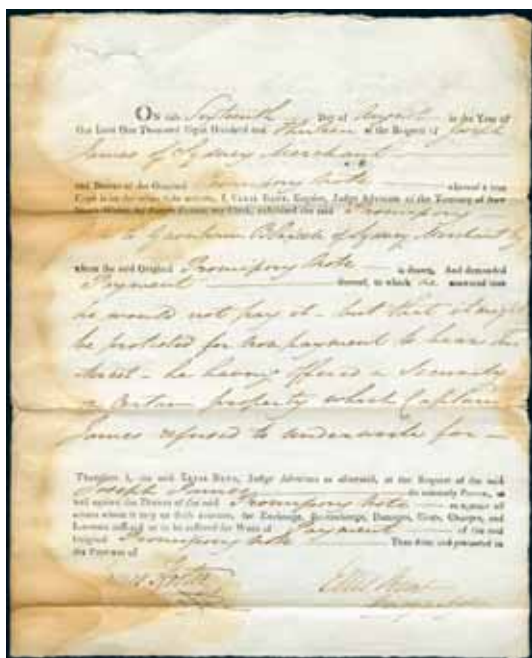 ON this Sixteenth Day of August in the Year of
Our Lord One Thousand Eight Hundred and Thirteen at the Request of Joseph
James of Sydney Merchant
and Bearer of the Original Promissory Note whereof a true
Copy is on the other side written, I, ELLIS BENT, Esquire, Judge Advocate of the Territory of New
South Wales, my Clerk, exhibited the said Promissory
Blaxcell of Sydney Merchant by
whom the said Original Promissory Note is drawn, And demanded
Payment thereof, to which he answered that
he would not pay it - but that it might
be protested for non payment to bear
Interest - he having offered a Security
on Certain property which Captain
James refused to underwrite for -
Therefore I, the said ELLIS BENT, Judge Advocate as aforesaid, at the Request of the said
Joseph James do solemnly Protest, as
well against the Drawer of the said Promissory Note as against all
others whom it may or doth concern, for Exchange, Re-exchange, Damages, Costs, Charges, and
Interests suffered or to be suffered for Want of Payment of the said
Original Promissory Note Thus done and protested in
the Presence of
Ellis Bent